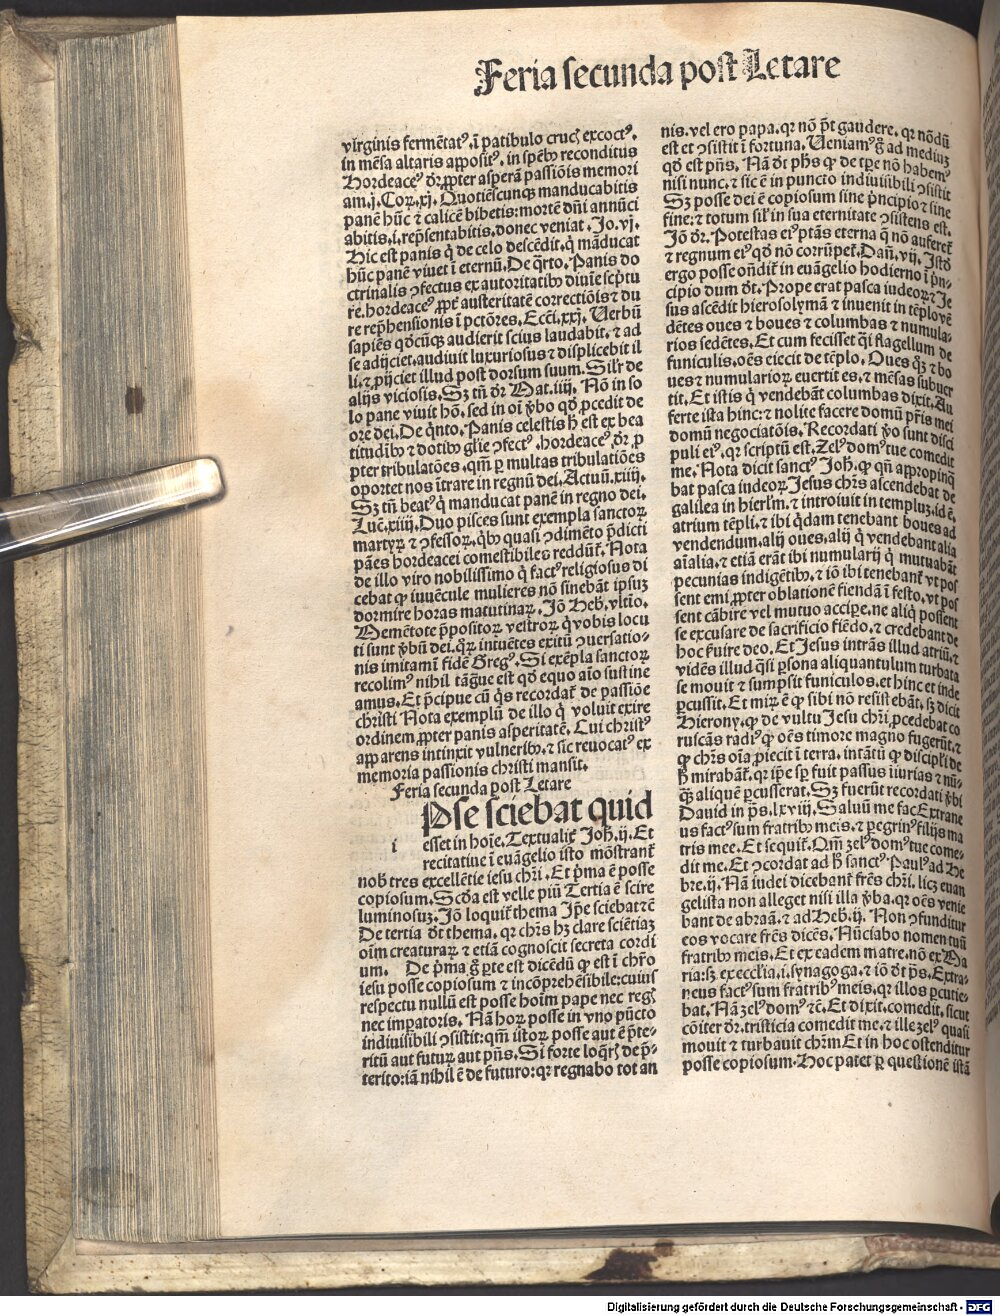 Feria secunda post Letare
virginis fermētatꝰ, ī patibulo crucꝭ excoctꝰ,
in mēsa altaris appositꝰ, in spēb⁹ reconditus
Hordeaceꝰ dr̄ ꝓpter asperā passiōis memori
am. j. Coꝝ. xj. Quotiēscunqꝫ manducabitis
panē hūc ⁊ calicē bibetis: mortē dn̄i annūci
abitis, i, rep̄sentabitis, donec veniat. Jo. vj.
Hic est panis q̇ de celo descēdit, q̇ māducat
hūc panē viuet ī eternū. De q̇rto. Panis do
ctrinalis ꝯfectus ex autoritatibꝰ diuīe scṗtu
re, hordeaceꝰ ꝓpt̄ austeritatē correctiōis ⁊ du
re rep̄hensionis ī pctōres. Ecci. xxj. Uerbū
sapiēs qd̄cūqꝫ audierit scius laudabit, ⁊ ad
se adijciet, audiuit luxuriosus ⁊ displicebit il
li, ⁊ ꝓijciet illud post dorsum suum. Sil̄r de
alijs viciosis. Sꝫ tn̄ dr̄ Mat. iiij. Nō in so
lo pane viuit hō, sed in oī v̄bo qd̄ ꝓcedit de
ore dei. De q̇nto. Panis celestis h̄ est ex bea
titudīb⁹ ⁊ dotib⁹ gl̄ie ꝯfectꝰ, hordeaceꝰ dr̄, ꝓ
pter tribulatōes, qm̄ ꝑ multas tribulatiōes
oportet nos ītrare in regnū dei. Actuū. xiiij.
Sꝫ tn̄ beatꝰ q̇ manducat panē in regno dei.
Luc̄. xiiij. Duo pisces sunt exempla sanctoꝝ
martyꝝ ⁊ ꝯfessoꝝ, q̇b⁹ quasi ꝯdimēto p̄dicti
pāes hordeacei comestibiles reddūt᷑. Nota
de illo viro nobilissimo q̇ factꝰ religiosus di
cebat ꝙ iuuēcule mulieres nō sinebāt ipsuꝫ
dormire horas matutinaꝝ. Jō Heb. vltīo.
Memētote p̄positoꝝ vestroꝝ q̇ vobis locu
ti sunt v̄bū dei, q̇ꝝ intuētes exitū ꝯuersatio-
nis imitamī fidē Gregꝰ. Si exēpla sanctoꝝ
recolimꝰ nihil tāgue est qd̄ equo aīo sustine
amus. Et p̄cipue cū q̇s recordat᷑ de passiōe
christi Nota exemplū de illo q̇ voluit exire
ordinem ꝓpter panis asperitatē. Cui christꝰ
apparens intinxit vulnerib⁹, ⁊ sic reuocatꝰ ex
memoria passionis christi mansit.
Feria secunda post Letare
i
Pse sciebat quid
esset in hoīe. Textualit᷑ Joh̄. ij. Et
recitatiue ī euāgelio isto mōstrant᷑
nob̄ tres excellētie iesu chr̄i. Et p̄ma ē posse
copiosum. Scd̄a est velle piū Tertia ē scire
luminosuꝫ. Jō loquit᷑ thema Ip̄e sciebat ⁊c̄
De tertia dt̄ thema, qr chr̄s hꝫ clare sciētiaꝫ
oīm creaturaꝝ ⁊ etiā cognoscit secreta cordi
um. De p̄ma g̊ ꝑte est dicēdū ꝙ est ī chr̄o
iesu posse copiosum ⁊ incōprehēsibile: cuius
respectu nullū est posse hoīm pape nec regꝭ
nec impatoris. Nā hoꝝ posse in vno pūcto
indiuisibili ꝯsistit: qm̄ istoꝝ posse aut ē p̄te-
ritū aut futuꝝ aut pn̄s. Si forte loq̇rꝭ de p̄-
terito: iā nihil ē de futuro: qr regnabo tot an
nis, vel ero papa, qr nō p̄t gaudere, qr nōdū
est et ꝯsistit ī fortuna. Ueniamꝰ g̊ ad mediuꝫ
qd̄ est pn̄s. Nā dt̄ ph̄s ꝙ de tp̄e nō habemꝰ
nisi nunc, ⁊ sic ē in puncto indiuisibili ꝯsistit
Sꝫ posse dei ē copiosum sine p̄ncipio ⁊ sine
fine: ⁊ totum sil̄ in sua eternitate ꝯsistens est.
Jō dr̄. Potestas eiꝰ ptās eterna q̄ nō auferet᷑
⁊ regnum eiꝰ qd̄ nō corrūpet᷑. Dan̄. vij. Istd̄
ergo posse oñdit᷑ in euāgelio hodierno ī p̄n-
cipio dum dt̄. Prope erat pasca iudeoꝝ ⁊ Je
sus ascēdit hierosolymā ⁊ inuenit in tēplo vē
dētes oues ⁊ boues ⁊ columbas ⁊ numula-
rios sedētes. Et cum fecisset q̄i flagellum de
funiculis, oēs eiecit de tēplo. Oues q̊ꝫ ⁊ bo
ues ⁊ numularioꝝ euertit es, ⁊ mēsas subuer
tit. Et istis q̇ vendebāt columbas dixit. Au
ferte ista hinc: ⁊ nolite facere domū pr̄is mei
domū negociatōis. Recordati v̄o sunt disci
puli eiꝰ, qr scriptū est. Zelꝰ domꝰ tue comedit
me. Nota dicit sanctꝰ Joh̄. ꝙ qn̄ appropinq̄
bat pasca iudeoꝝ Jesus chr̄s ascendebat de
galilea in hierl̄m, ⁊ introiuit in templuꝫ, id ē,
atrium tēpli, ⁊ ibi q̇dam tenebant boues ad
vendendum, alij oues, alij q̇ vendebant alia
aīalia, ⁊ etiā erāt ibi numularij q̇ mutuabāt
pecunias indigētib⁹, ⁊ iō ibi tenebant᷑ vt pos
sent emi, ꝓpter oblationē fiendā ī festo, vt pos
sent cābire vel mutuo accipe, ne aliq̇ possent
se excusare de sacrificio fiēdo, ⁊ credebant de
hoc ẜuire deo. Et Jesus intrās illud atriū, ⁊
vidēs illud q̄si ꝑsona aliquantulum turbata
se mouit ⁊ sumpsit funiculos, et hinc et inde
ꝑcussit. Et miꝝ ē ꝙ sibi nō resistebāt, sꝫ dicit
Hierony. ꝙ de vultu Jesu chr̄i, ꝓcedebat co
ruscās radiꝰ ꝙ oēs timore magno fugerūt, ⁊
ꝙ chr̄s oīa ꝓiecit ī terra, intātū ꝙ discipl̄i de
h̄ mirabāt᷑, qr ip̄e sꝑ fuit passus iiurias ⁊ nū-
q̄ꝫ aliquē ꝑcusserat. Sꝫ fuerūt recordati v̄bi
Dauid in ps̄. lxviij. Saluū me fac Extrane
us factꝰ sum fratrib⁹ meis, ⁊ ꝑegrinꝰ filijs ma
tris mee. Et sequit᷑. Qm̄ zelꝰ domꝰ tue come-
dit me. Et ꝯcordat ad h̄ sanctꝰ Paulꝰ ad He
bre. ij. Nā iudei dicebant᷑ frēs chr̄i, licꝫ euan
gelista non alleget nisi illa v̄ba, qr oēs venie
bant de abraā, ⁊ ad Heb. ij. Non ꝯfunditur
eos vocare frēs dicēs. Nūciabo nomen tuū
fratrib⁹ meis. Et ex eadem matre, nō ex Ma
ria: sꝫ ex eccl̄ia, i, synagoga, ⁊ iō dt̄ ps̄. Extra-
neus factꝰ sum fratribꝰ meis, qr illos ꝑcutie-
bat. Nā zelꝰ domꝰ ⁊c̄. Et dixit, comedit, sicut
cōiter dr̄, tristicia comedit me, ⁊ ille zelꝰ quasi
mouit ⁊ turbauit chr̄m Et in hoc ostenditur
posse copiosum. Hoc patet ꝑ questionē istā
Digitalisierung gefördert durch die Deutsche Forschungsgemeinschaft - DFG